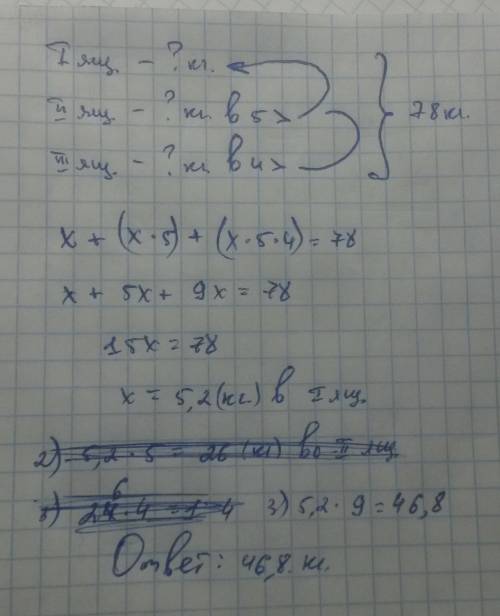 I ящ. – ? кг.
II ящ – ? кг. в 5 > } 78 кг.
III ящ – ? кг в 4 >
x + (x · 5) + (x · 5 · 4) = 78
x + 5x + 9x = 78
15x = 78
x = 5,2 (кг) в I ящ.
2) 5,2 · 5 = 26 (кг) во II ящ
3) 5,2 · 9 = 46,8
Ответ: 46,8 кг.